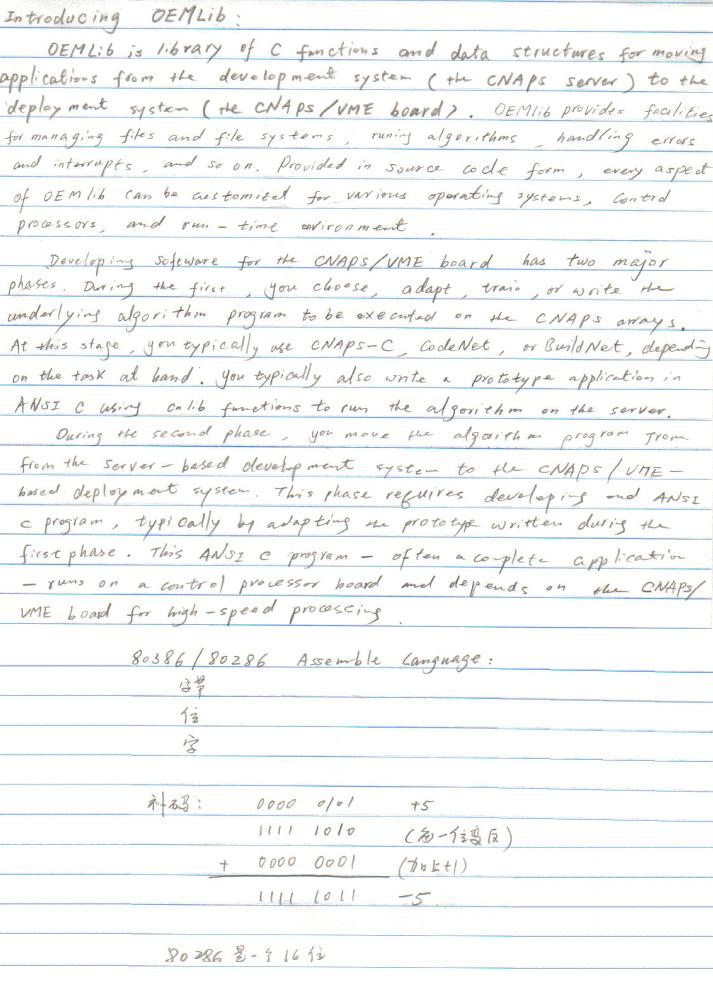 Introducing OEMLib:
OEMLib is library of C functions and data structures for moving
applications from the development system (the CNAPS server) to the
deployment system (the CNAPS/VME board). OEMlib provides facilities
for managing files and file systems, runing algorithms, handling errors
and interrupts, and so on. Provided in source code form, every aspect
of OEMlib can be customized for various operating systems, control
processors, and run-time environment.
Developing software for the CNAPS/VME board has two major
phases. During the first, you choose, adapt, train, or write the
underlying algorithm program to be executed on the CNAPS arrays.
At this stage, you typically use CNAPS-C, CodeNet, or BuildNet, depending
on the task at hand. You typically also write a prototype application in
ANSI C using cnlib functions to run the algorithm on the server.
During the second phase, you move the algorithm program from
from the server-based development system to the CNAPS/VME-
based deployment system. This phase requires developing and ANSI
C program, typically by adapting the prototype written during the
first phase. This ANSI C program - often a complete application
- runs on a control processor board and depends on the CNAPS/
VME board for high-speed processing.
80386/80286 Assemble Language:
字节
位
字
补码: 0000 0101 +5
1111 1010 (每一位变反)
+ 0000 0001 (加上+1)
1111 1011 -5
80286是一个16位